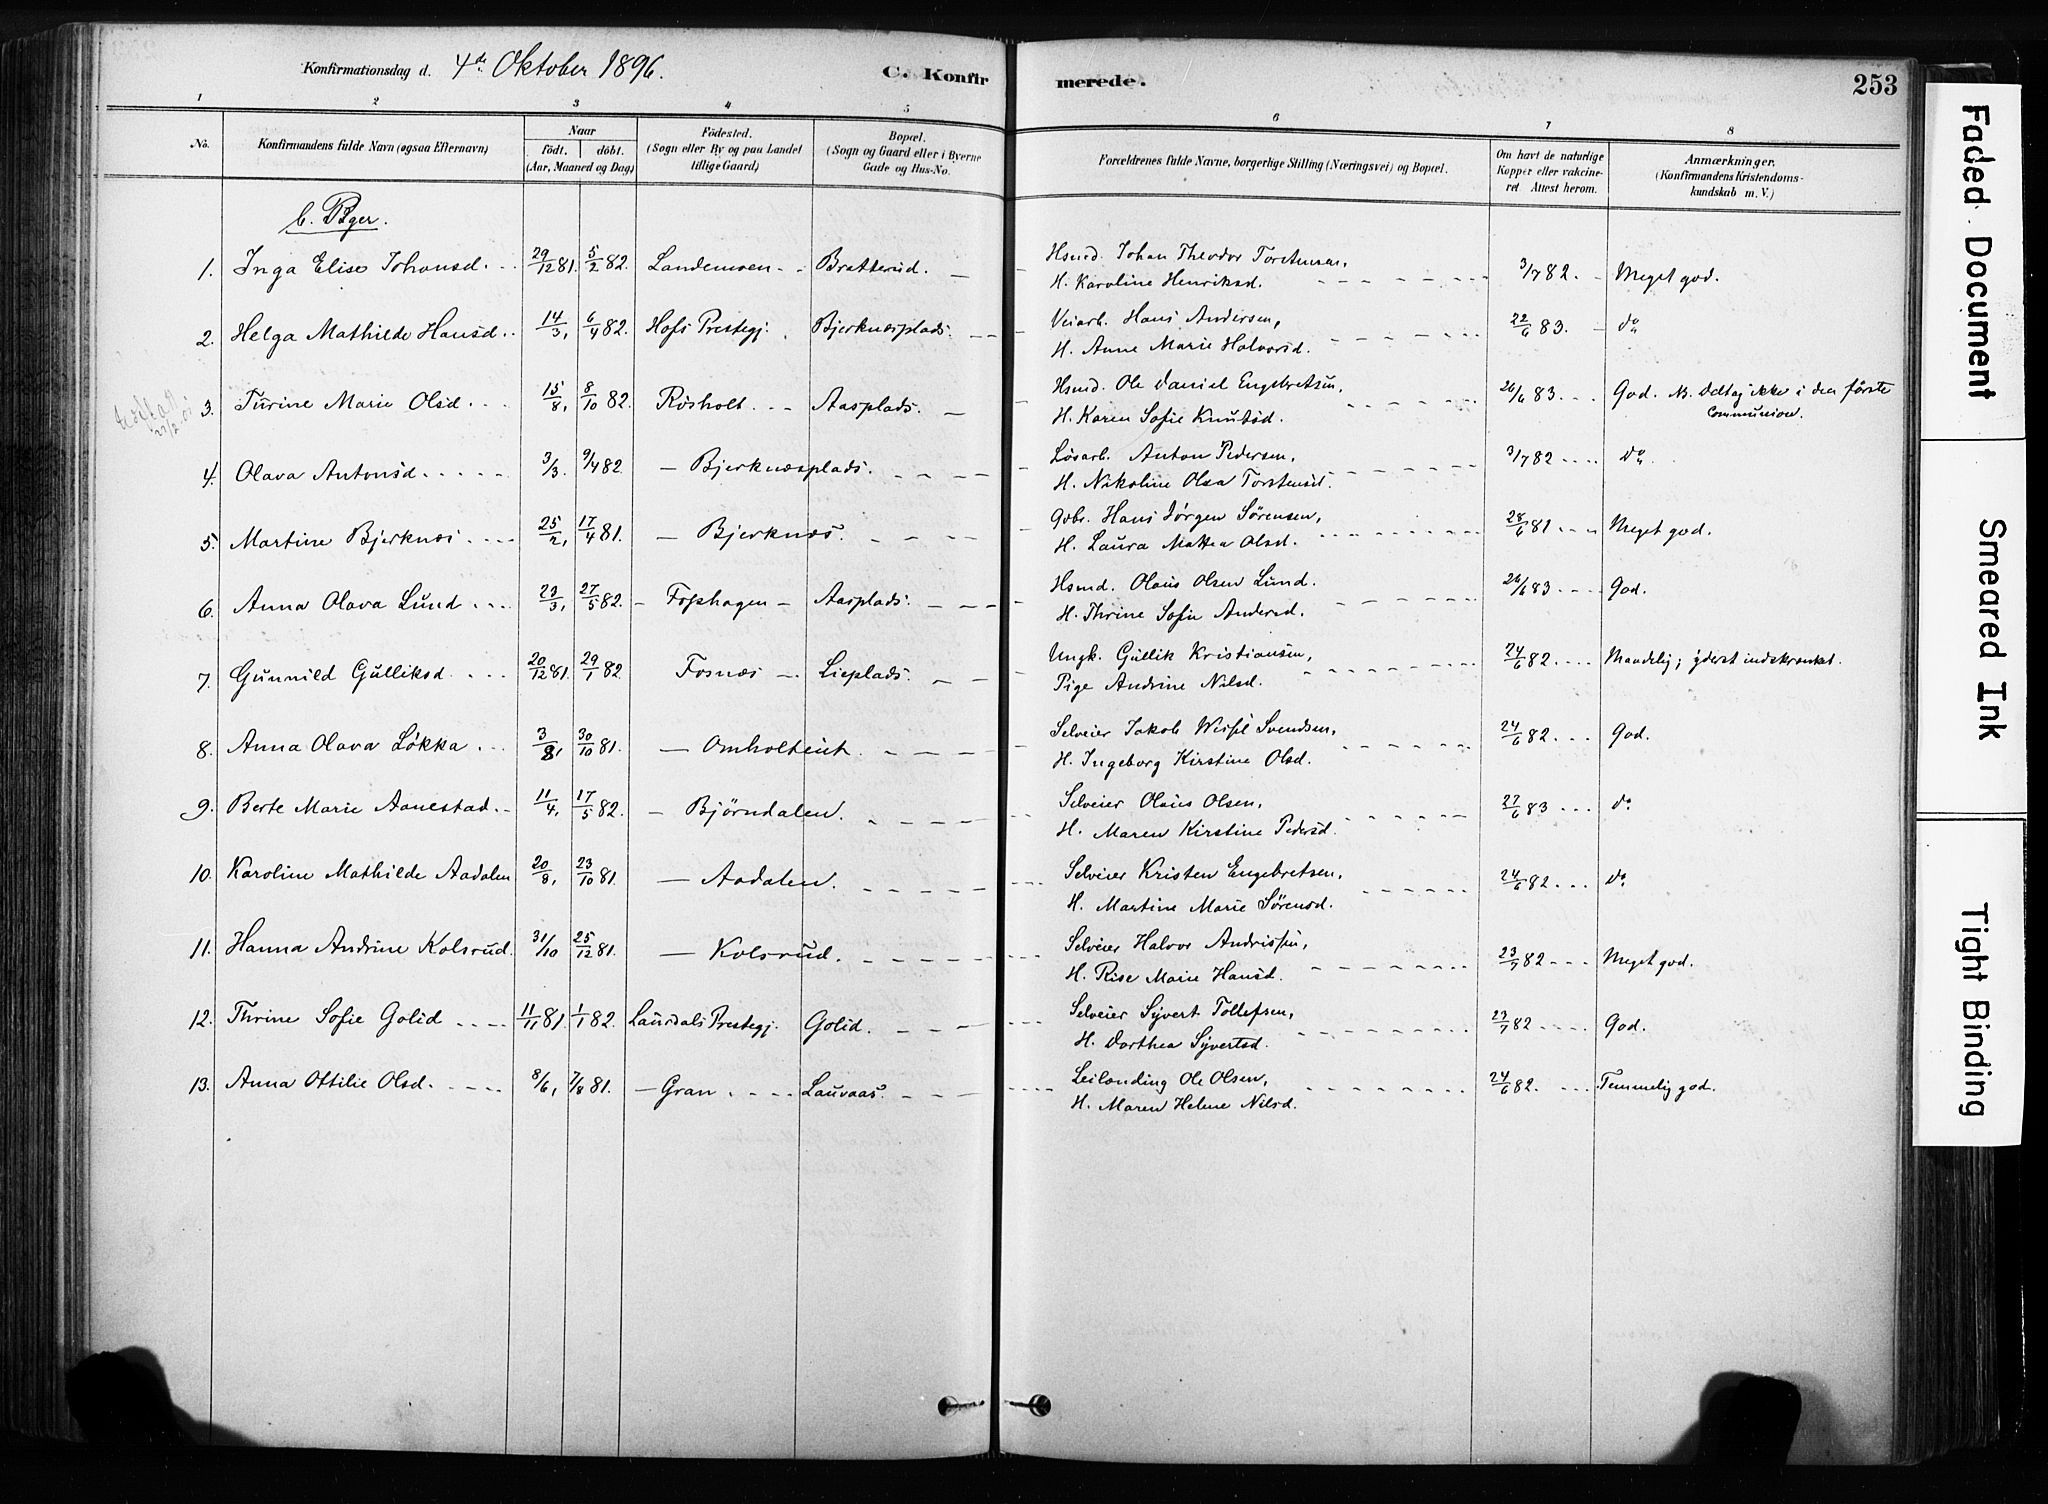 Konfirmationsdag d. 4de Oktober 1896.
C. Konfirmerede.
253
1 2 3 4 5 6 7 8
No.
Konfirmandens fulde Navn (ogsaa Efternavn)
Naar født. døbt. (Aar, Maaned og Dag)
Födested. (Sogn eller By og paa Landet tillige Gaard)
Bopæl. (Sogn og Gaard eller i Byerne Gade og Hus-No.
Forældrenes fulde Navne, borgerlige Stilling (Næringsvei) og Bopæl.
Om havt de naturlige Kopper eller vakcineret. Attest herom.
Anmærkninger. (Konfirmandens Kristendomskundskab m. V.)
b. Piger.
1. Inga Elise Johansd. 29/12 81. 5/2 82. Landemoen Bratterud. Hsmd. Johan Theodor Torstensen, 3/7 82. Meget god.
H. Karoline Henriksd.
2. Helga Mathilde Hansd. 14/3, 6/4 82. Hofs Prestegj. Bjerknæsplads. Veiarb. Hans Andersen, 22/6 83. do
H. Anne Marie Halvorsd.
3. Turine Marie Olsd. 15/8, 8/10 82. Røsholt. Aasplads. Hsmd. Ole Daniel Engebretsen, 26/6 83. God. NB. Deltog ikke i den første
H. Karen Sofie Knutsd. Communion.
4. Olava Antonsd. 3/3. 9/4 82. – Bjerknæsplads. Løsarb. Anton Pedersen, 3/7 82. do
H. Nikoline Olsa Torstensd.
5. Martine Bjerknæs. 25/2, 17/4 81. – Bjerknæs. Gbr. Hans Jørgen Sørensen, 28/6 81. Meget god.
H. Laura Mattea Olsd.
6. Anna Olava Lund. 23/3, 27/5 82. Foshagen – Aasplads. Hsmd. Olaus Olsen Lund. 26/6 83. God.
H. Thrine Sofie Andersd.
7. Gunnild Gulliksd. 20/12 81. 29/1 82. Fosnæs – Lieplads. Ungk. Gullik Kristiansen, 24/6 82. Maadelig; yderst indskrænket.
Pige Andrine Nilsd.
8. Anna Olava Løkka. 3/8, 30/10 81. – Omholteiet. Selveier Jakob Wessel Svendsen, 24/6 82. God.
H. Ingeborg Kirstine Olsd.
9. Berte Marie Aanestad. 11/4, 17/5 82. – Bjørndalen. Selveier Olaus Olsen, 27/6 83. do
H. Maren Kirstine Pedersd.
10. Karoline Mathilde Aadalen 20/8, 23/10 81. – Aadalen. Selveier Kristen Engebretsen, 24/6 82. do
H. Martine Marie Sørensd.
11. Hanna Andrine Kolsrud. 31/10 25/12 81. – Kolsrud. Selveier Halvor Andrissen, 23/7 82. Meget god.
H. Rise Marie Hansd.
12. Thrine Sofie Golid 11/11 81. 1/1 82. Laurdals Prestegj. Golid. Selveier Syvert Tollefsen, 23/7 82. God.
H. Dorthea Syvertsd.
13. Anna Ottilie Olsd. 8/6, 7/8 81. – Gran. Lauvaas. Leilænding Ole Olsen, 24/6 82. Temmelig god.
H. Maren Helene Nilsd.
Faded Document
Smeared Ink
Tight Binding